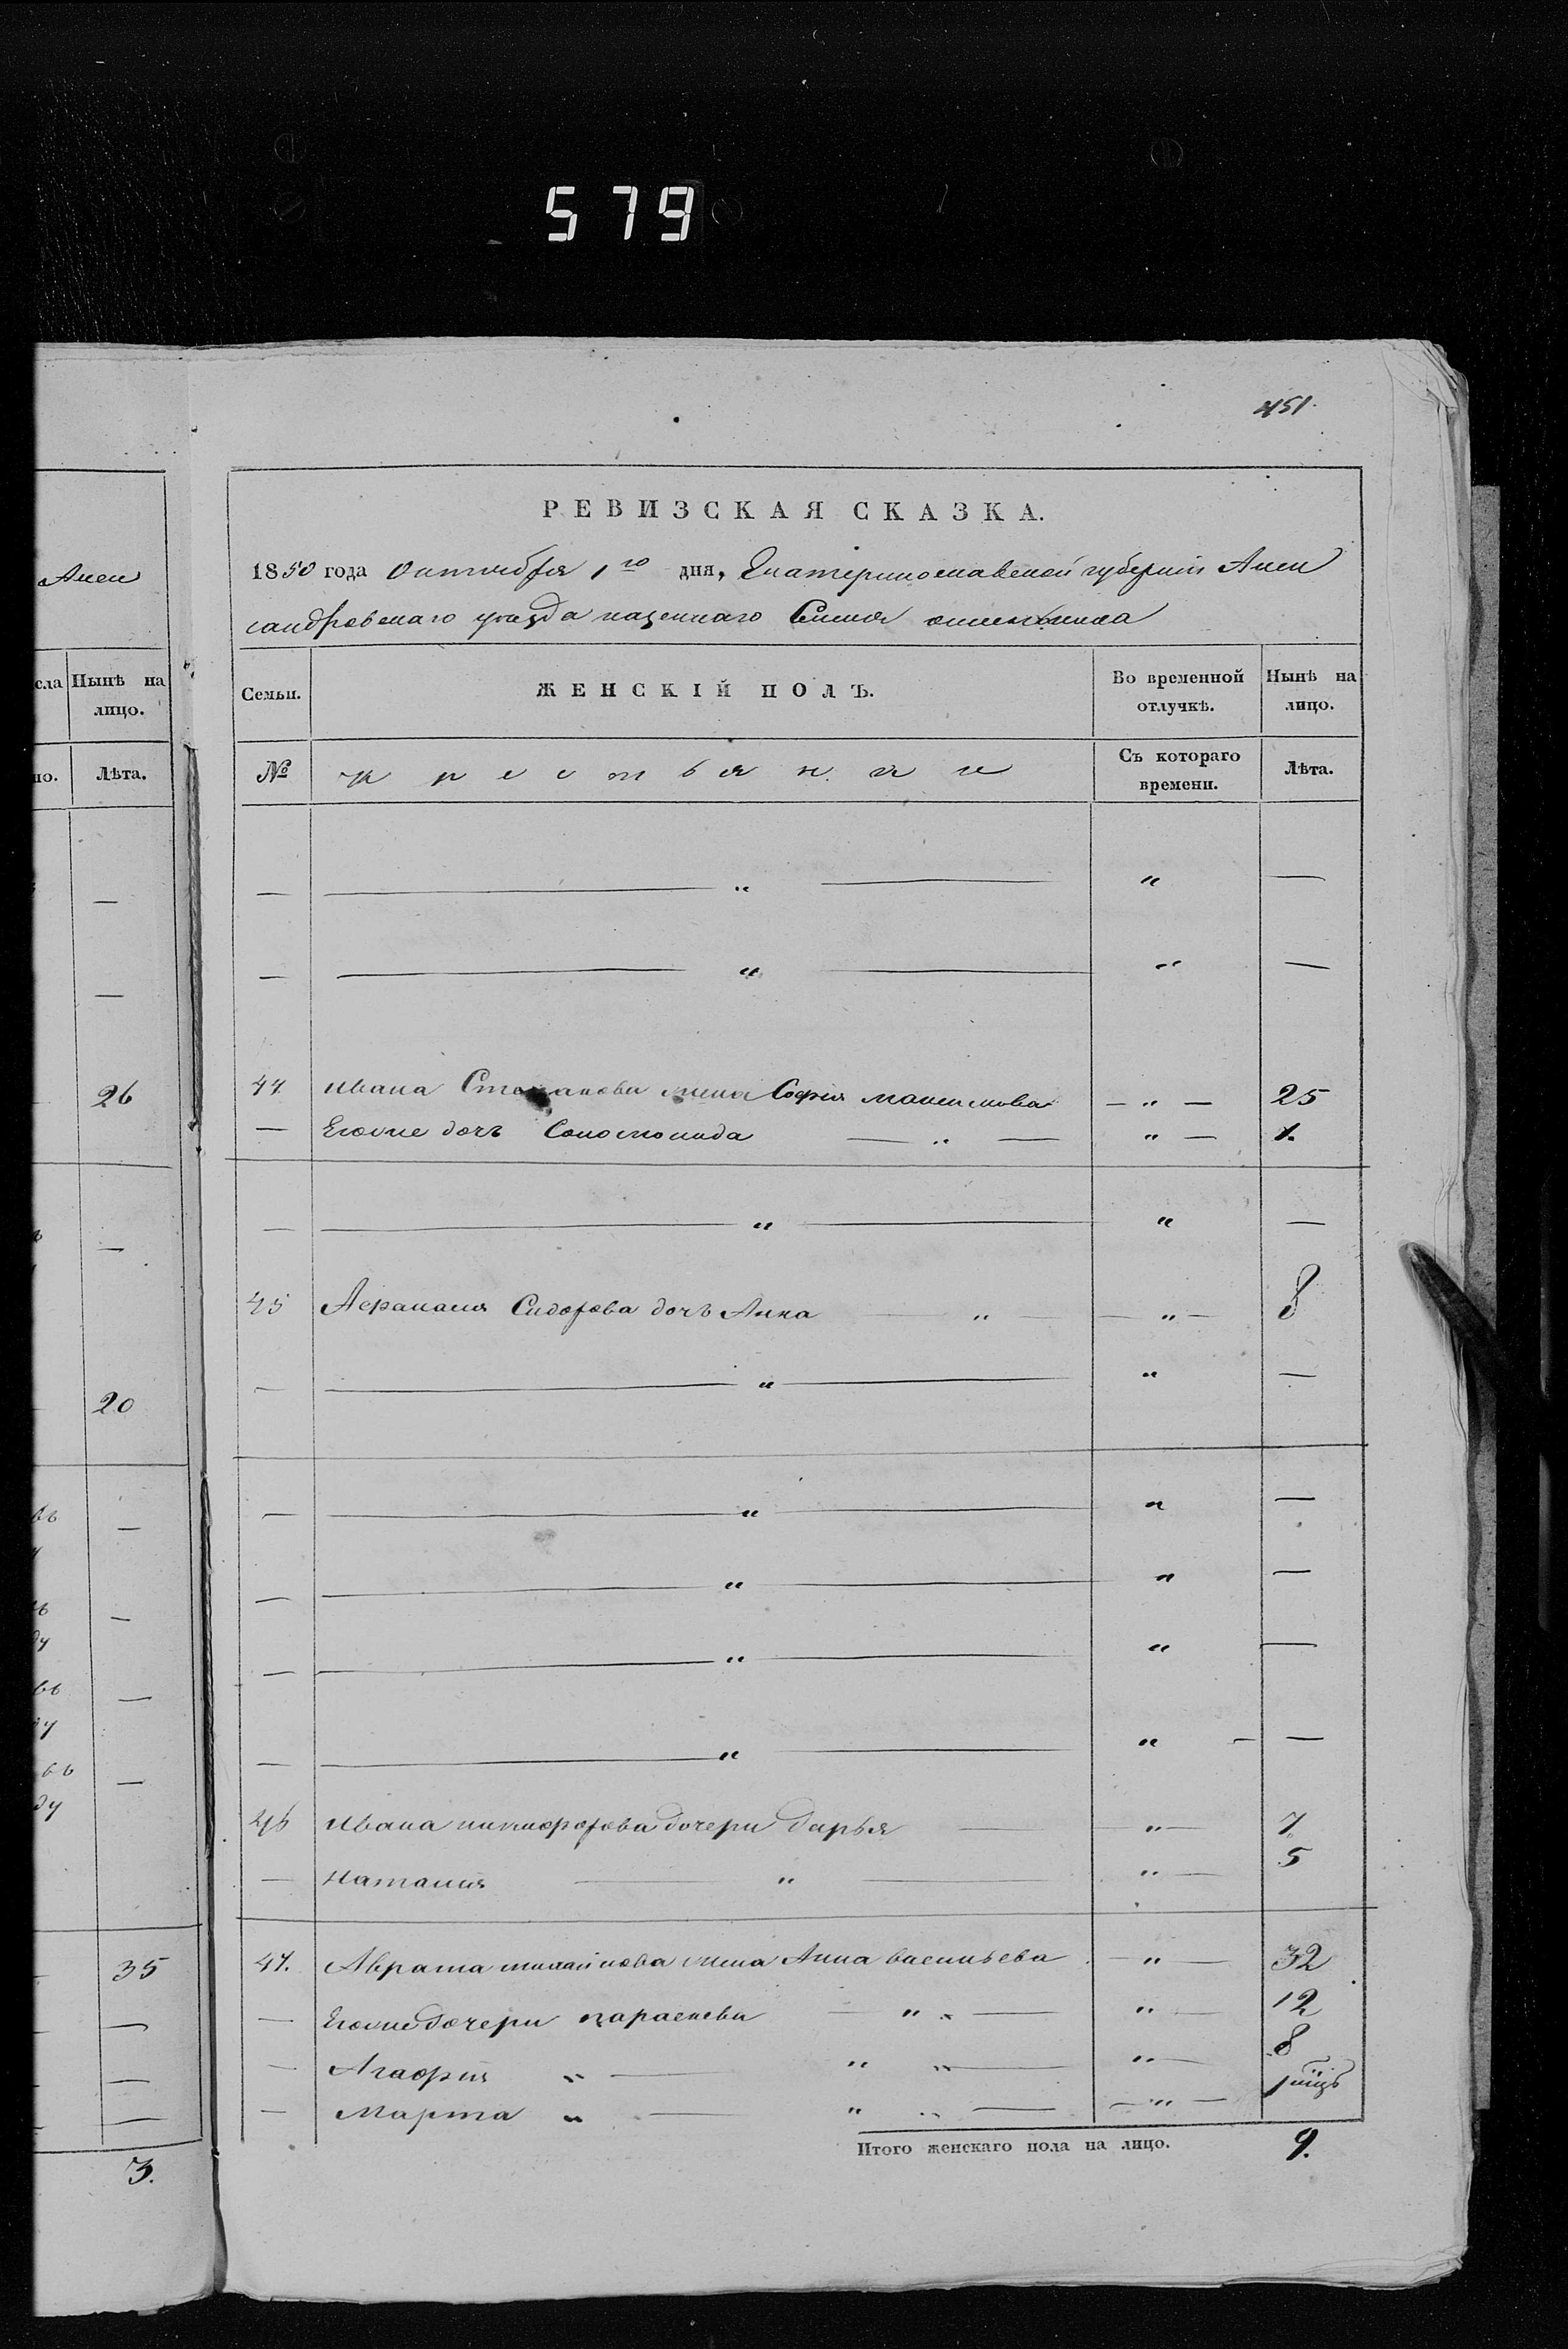 579
451.
Алек
сла Нынѣ на
лицо.
но. Лѣта.
—
—
26
—
20
въ —
ду —
въ —
ду
въ —
ду
35
—
—
—
3.
РЕВИЗСКАЯ СКАЗКА.
1850 года Октября 1го дня, Екатеринославской губерніи Алек
сандровскаго уезда казеннаго Селенія
Семьи. ЖЕНСКІЙ ПОЛЪ. Во временной отлучкѣ. Нынѣ на лицо.
№ крестьянки Съ котораго времени. Лѣта.
— — „ — „ —
— — „ — „ —
44 Ивана Степанова жена Софія Максимова — „ — 25
— Егожъ дочь Соломонида — „ — „ — 1.
— — „ — „ —
45 Афанасия Сидорова дочь Анна — „ — — „ — 8
— — „ — „ —
— — „ — „ —
— — „ — „ —
— — „ — „ —
— — „ — „ — —
46 Ивана Никифорова дочери Дарья — — „ — 7
— Наталия — „ — „ — 5
47. Михайлова жена Анна Васильева — „ — 32
— Егожъ дочери Параскева — „ — „ — 12
— Агафия „ — „ „ — „ — 8
— Марта „ — „ „ — — „ —
Итого женскаго пола на лицо. 9.